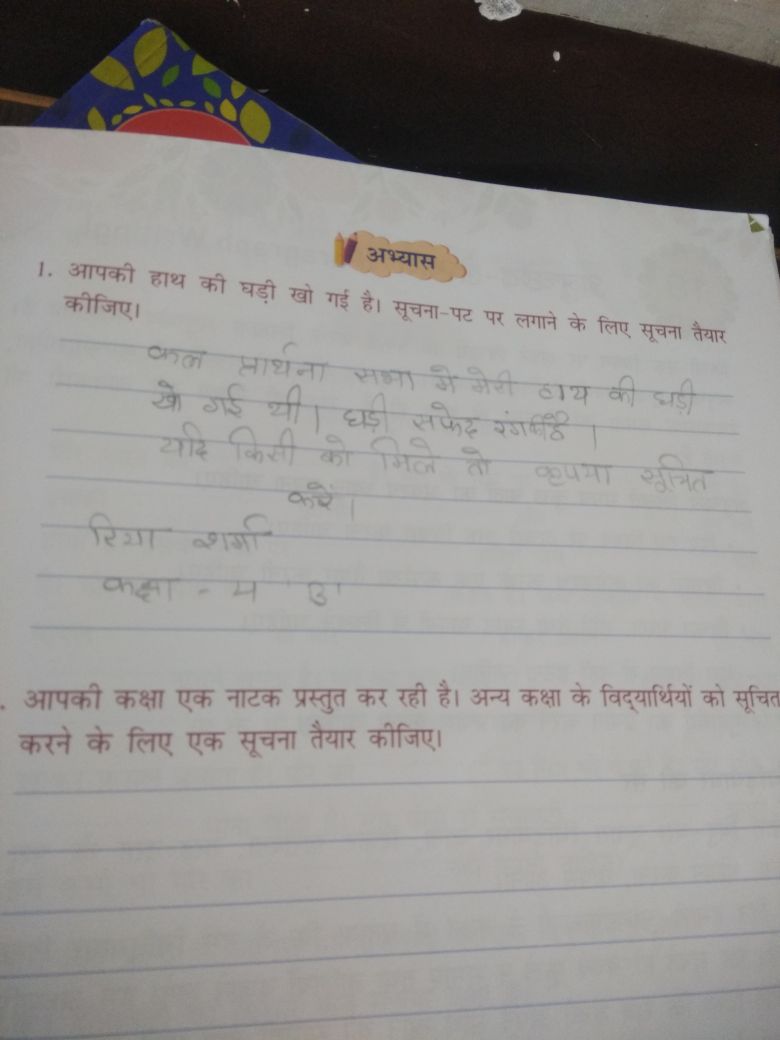 अभ्यास
1. आपकी हाथ की घड़ी खो गई है। सूचना-पट पर लगाने के लिए सूचना तैयार
कीजिए।
कल प्रार्थना सभा मे मेरी हाथ की घड़ी
खो गई थी। घड़ी सफेद रंग की है।
यदि किसी को मिले तो कृपया सूचित
करें।
रिया शर्मा
कक्षा - 4 'B'
. आपकी कक्षा एक नाटक प्रस्तुत कर रही है। अन्य कक्षा के विद्‌यार्थियों को सूचित
करने के लिए एक सूचना तैयार कीजिए।